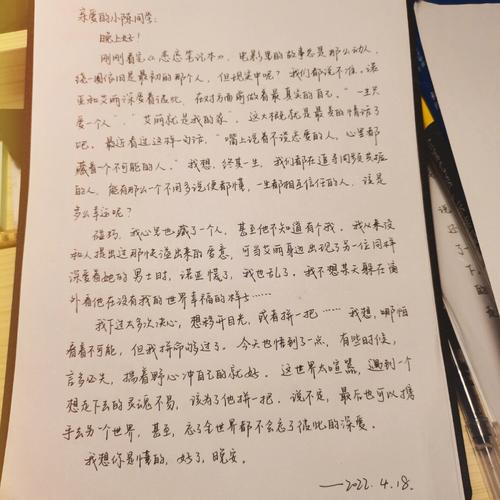 亲爱的小陈同学：
晚上好！
刚刚看完《恋恋笔记本》，电影里的故事总是那么动人，
绕一圈依旧是最初的那个人，但现实中呢？我们都说不准。诺
亚和艾丽深爱着彼此，在对方面前做着最真实的自己，“一生只
爱一个人”，“艾丽就是我的家”，这大概就是最美的情话了
吧。最近看过这样一句话，“嘴上说着不谈恋爱的人，心里都
藏着一个不可能的人。”我想，终其一生，我们都在追寻同频共振
的人，能有那么一个不用多说便都懂，一生都相互信任的人，该是
多么幸运呢？
碰巧，我心里也藏了一个人，甚至他不知道有个我。我从来没
和人提出过这那快溢出来的爱意，可当艾丽身边出现了另一位同样
深爱着她的男士时，诺亚慌了，我也乱了，我不想某天躲在满
外看他在没有我的世界幸福的样子……
我下过太多次决心，想移开目光，或者拼一把……我想，哪怕
看着不可能，但我拼命够过了。今天也悟到了一点，有些时候，
言多必失，揣着野心冲自己的就好。这世界太喧嚣，遇到一个
想走下去的灵魂不易，该为了他拼一把，说不定，最后也可以携
手去另一个世界，甚至，忘了全世界都不会忘了彼此的深爱。
我想你是懂的，好了，晚安。
——2022.4.18.